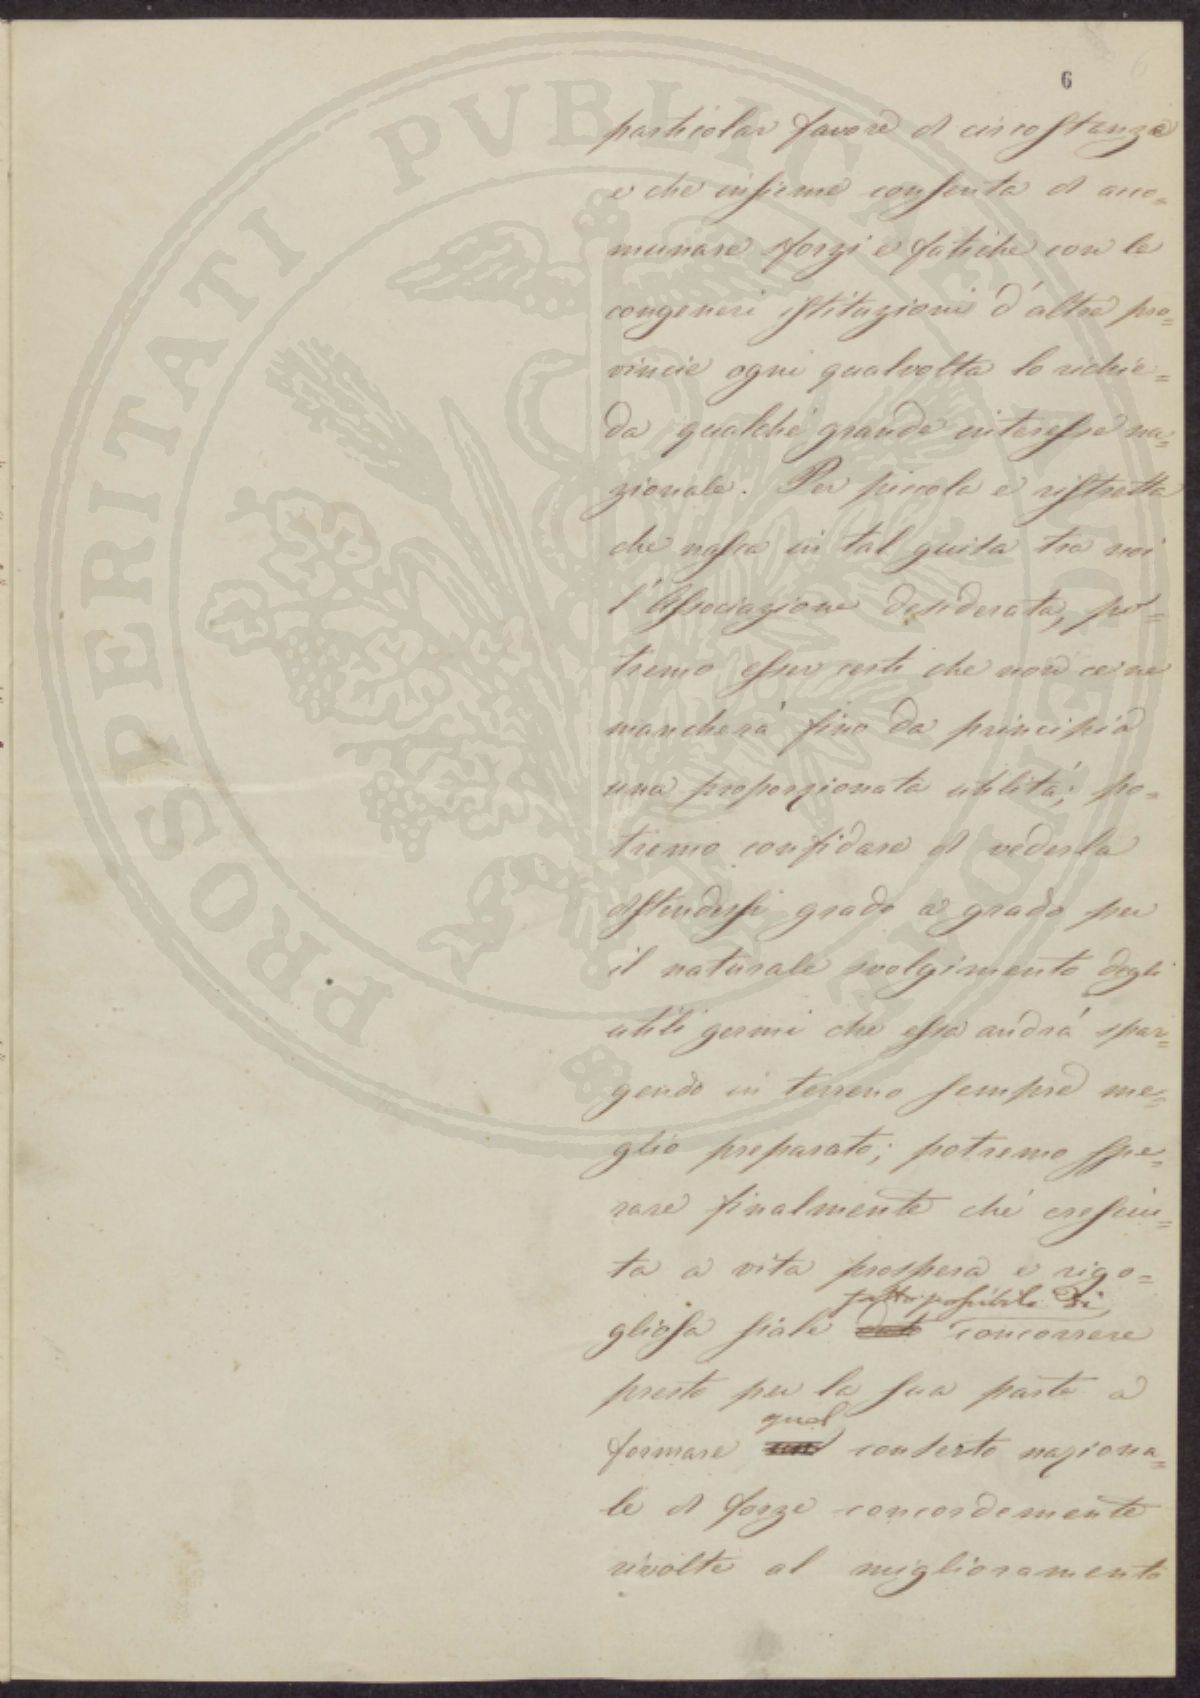 6
particolar favore di circostanze
e che insieme consenta di acco=
munare sforzi e fatiche con le
congeneri istituzioni d'altre pro=
vincie ogni qualvolta lo richie=
da qualche grande interesse na=
zionale. Per piccola e ristretta
che nasca in tal guisa tra noi
l'Associazione desiderata, po=
tremo esser certi che non ce ne
mancherà fino da principio
una proporzionata utilità; po=
tremo confidare di vederla
distendersi grado a grado per
il naturale svolgimento degli
utili germi che essa andrà spar=
gendo in terreno sempre me=
glio preparato; potremo spe=
rare finalmente che cresciu=
ta a vita prospera e rigo=
fatto possibile di
gliosa siale dato concorrere
presto per la sua parte a
quel
formare un conserto naziona=
le di forze concordemente
rivolte al miglioramento
PROSPERITATI PVBLICAE AVGENDAE